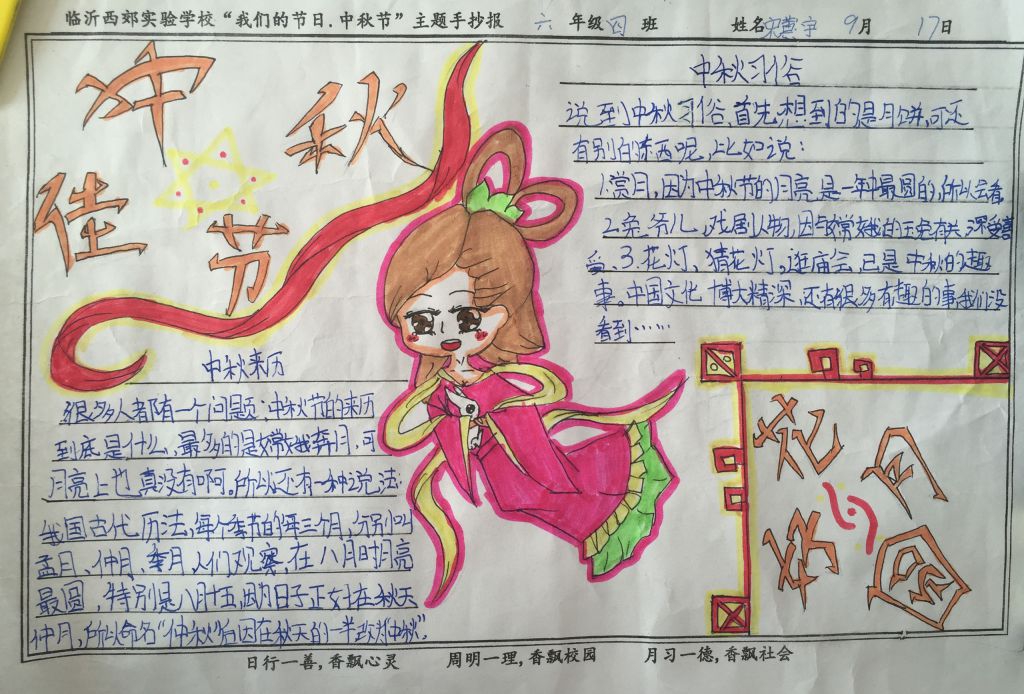 临沂西郊实验学校“我们的节日.中秋节”主题手抄报 六 年级 四 班 姓名 9月 17日
中秋
佳节
中秋习俗
说到中秋习俗,首先想到的是月饼,可还
有别的东西呢,比如说:
1.赏月,因为中秋节的月亮是一年中最圆的,所以会看
2.兔爷儿,戏剧人物,因与嫦娥的玉兔有关,深受喜
爱 3.花灯、猜花灯,逛庙会,已是中秋的趣
事。中国文化博大精深,还有很多有趣的事我们没
看到……
中秋来历
很多人都有一个问题:中秋节的来历
到底是什么,最多的是嫦娥奔月,可
月亮上也真没有啊。所以还有一种说法:
我国古代历法,每个季节的每三个月,分别叫
孟月、仲月、季月,人们观察,在八月时月亮
最圆,特别是八月十五,因为日子正好在秋天
仲月,所以命名“仲秋”后因在秋天的一半改为“中秋”。
花好
月圆
日行一善,香飘心灵 周明一理,香飘校园 月习一德,香飘社会